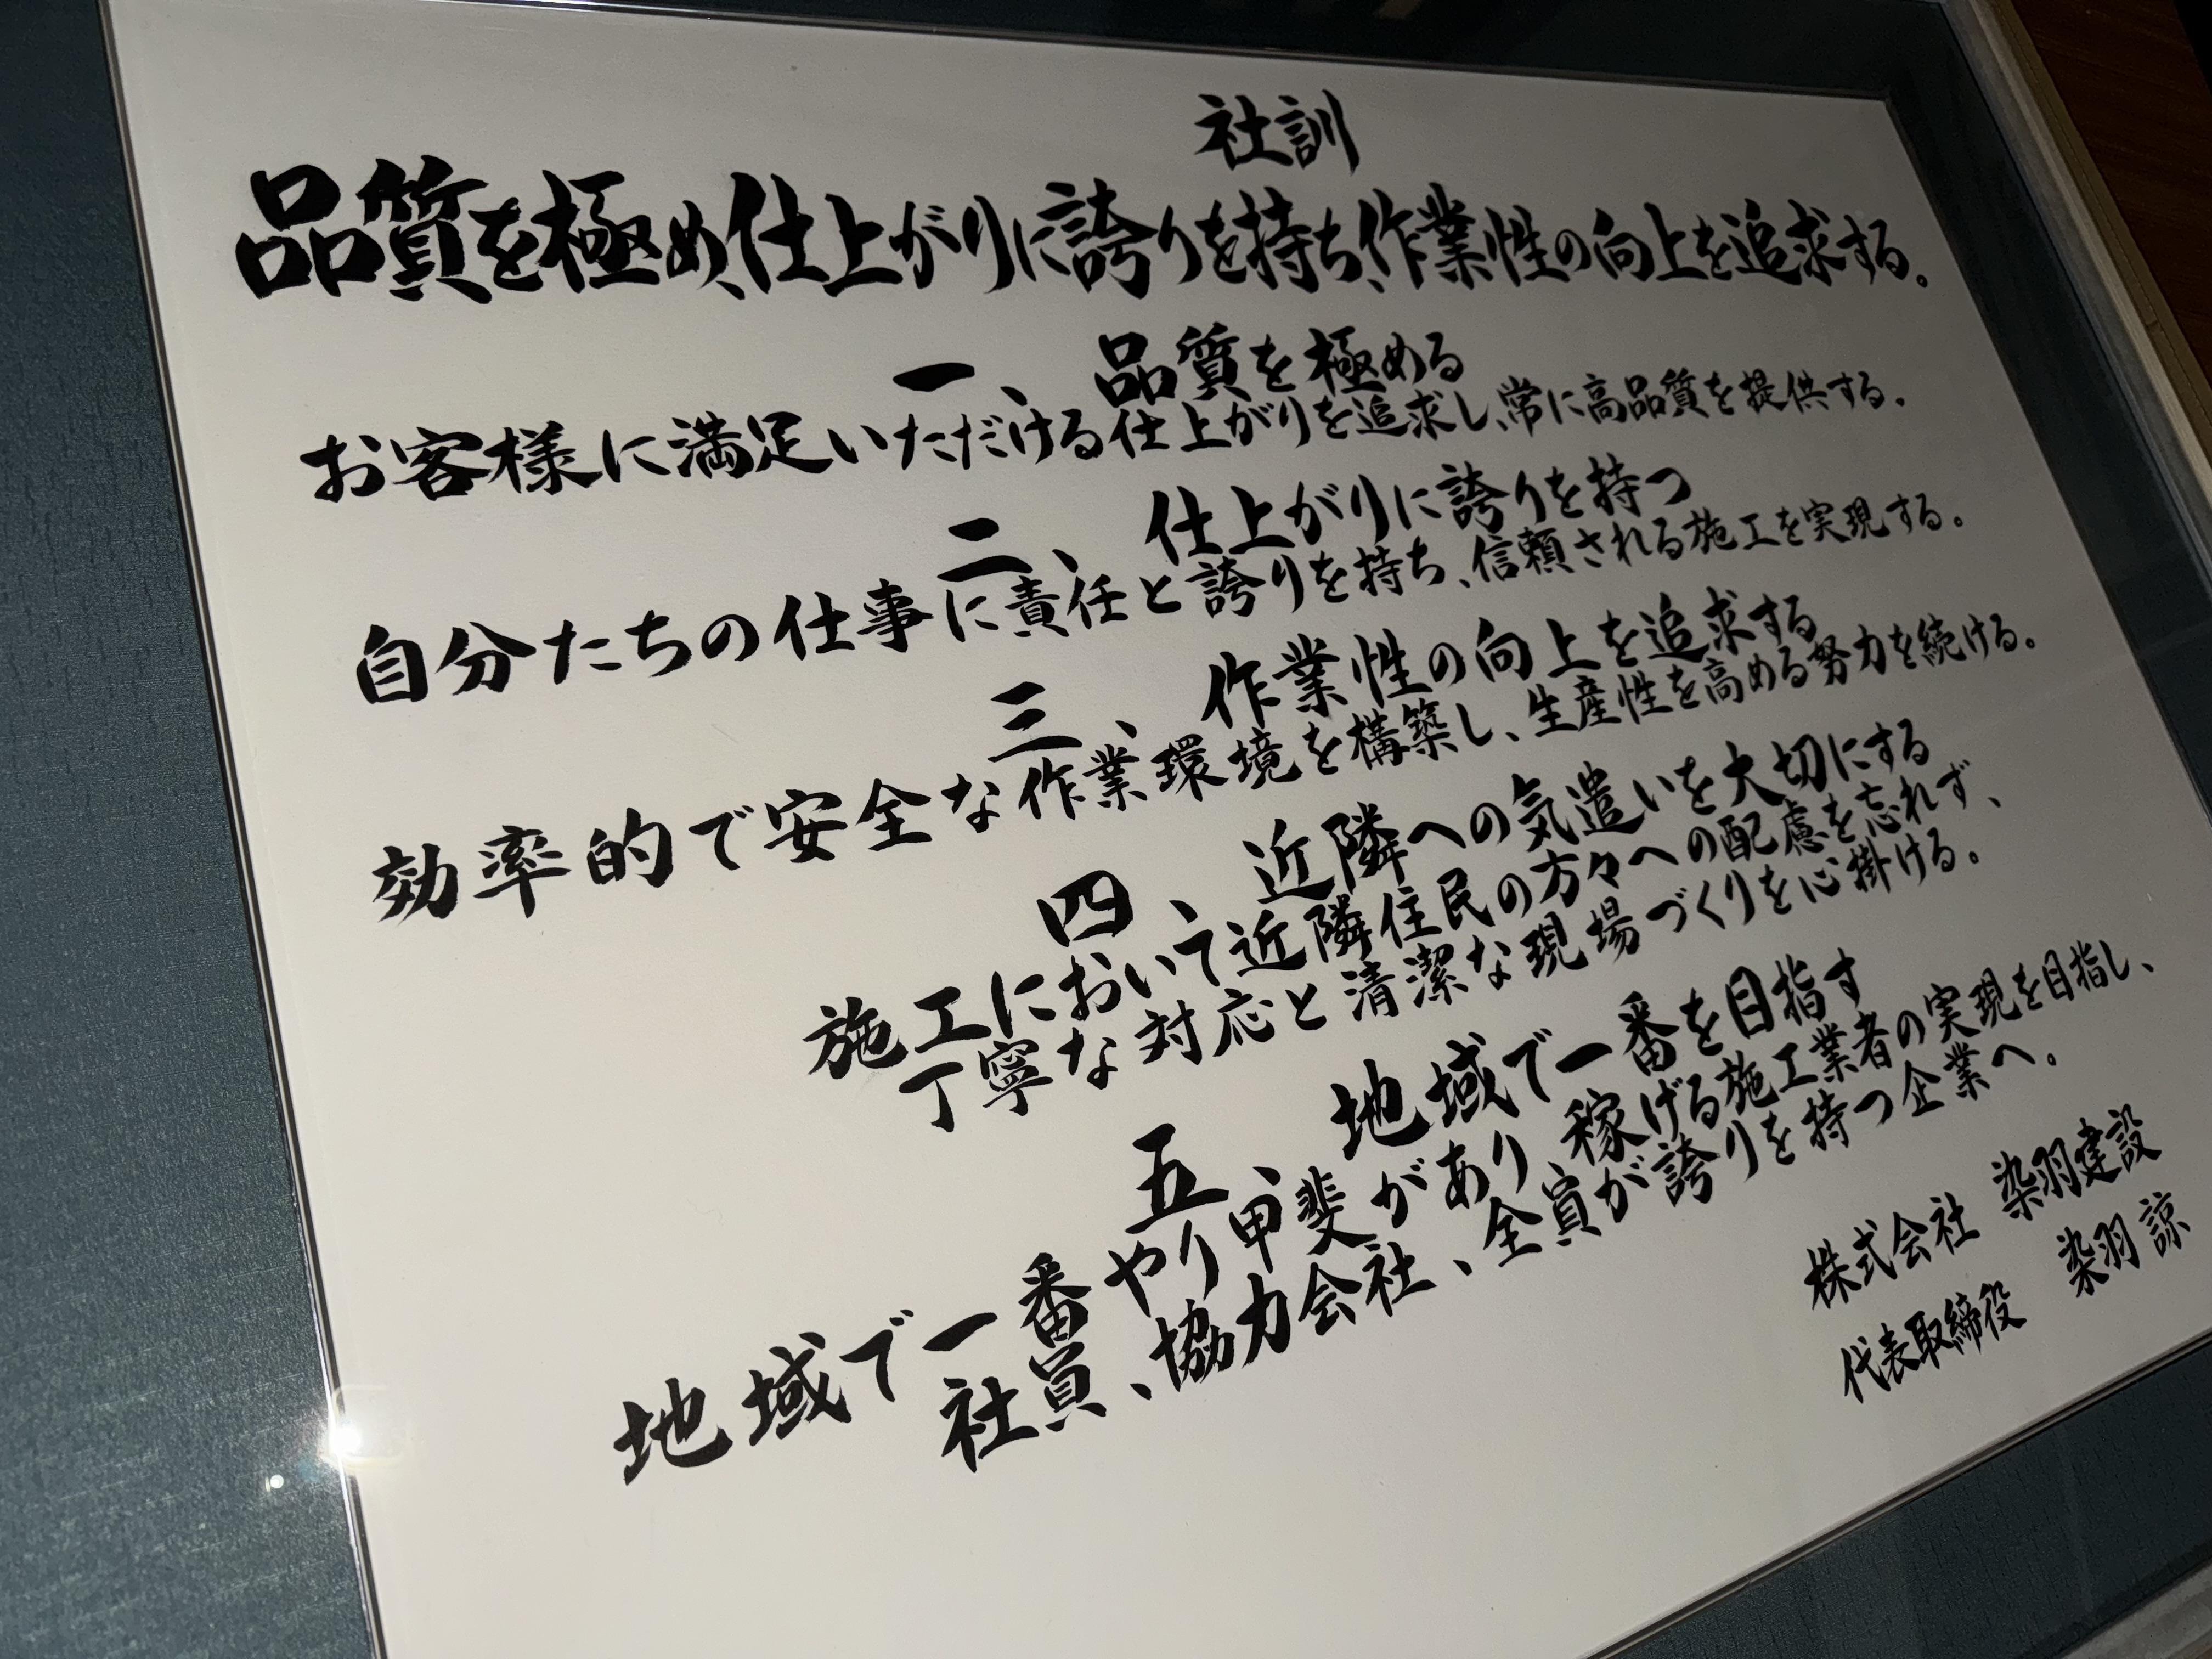 社訓
品質を極め、仕上がりに誇りを持ち、作業性の向上を追求する。
一、品質を極める
お客様に満足いただける仕上がりを追求し、常に高品質を提供する。
二、仕上がりに誇りを持つ
自分たちの仕事に責任と誇りを持ち、信頼される施工を実現する。
三、作業性の向上を追求する
効率的で安全な作業環境を構築し、生産性を高める努力を続ける。
四、近隣への気遣いを大切にする
施工において近隣住民の方々への配慮を忘れず、
丁寧な対応と清潔な現場づくりを心掛ける。
五、地域で一番を目指す
地域で一番やり甲斐があり、稼げる施工業者の実現を目指し、
社員、協力会社、全員が誇りを持つ企業へ。
株式会社 染羽建設
代表取締役 染羽諒